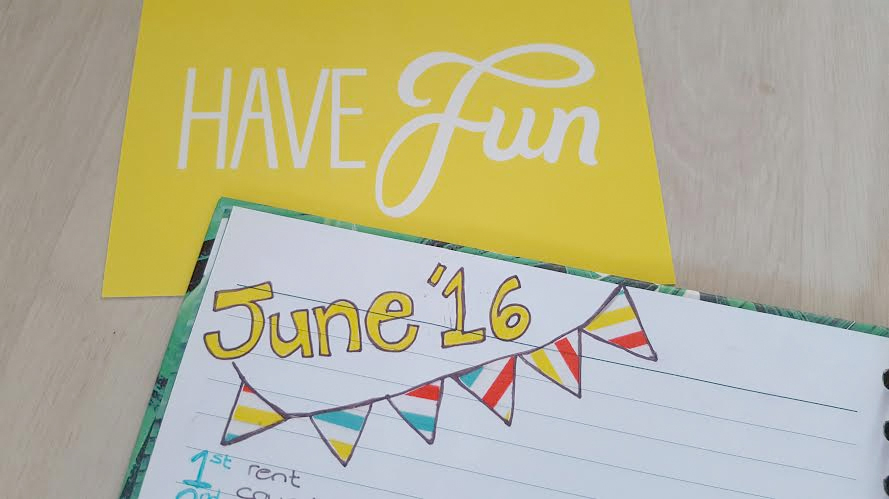 HAVE Fun
June '16
1st rent
2nd